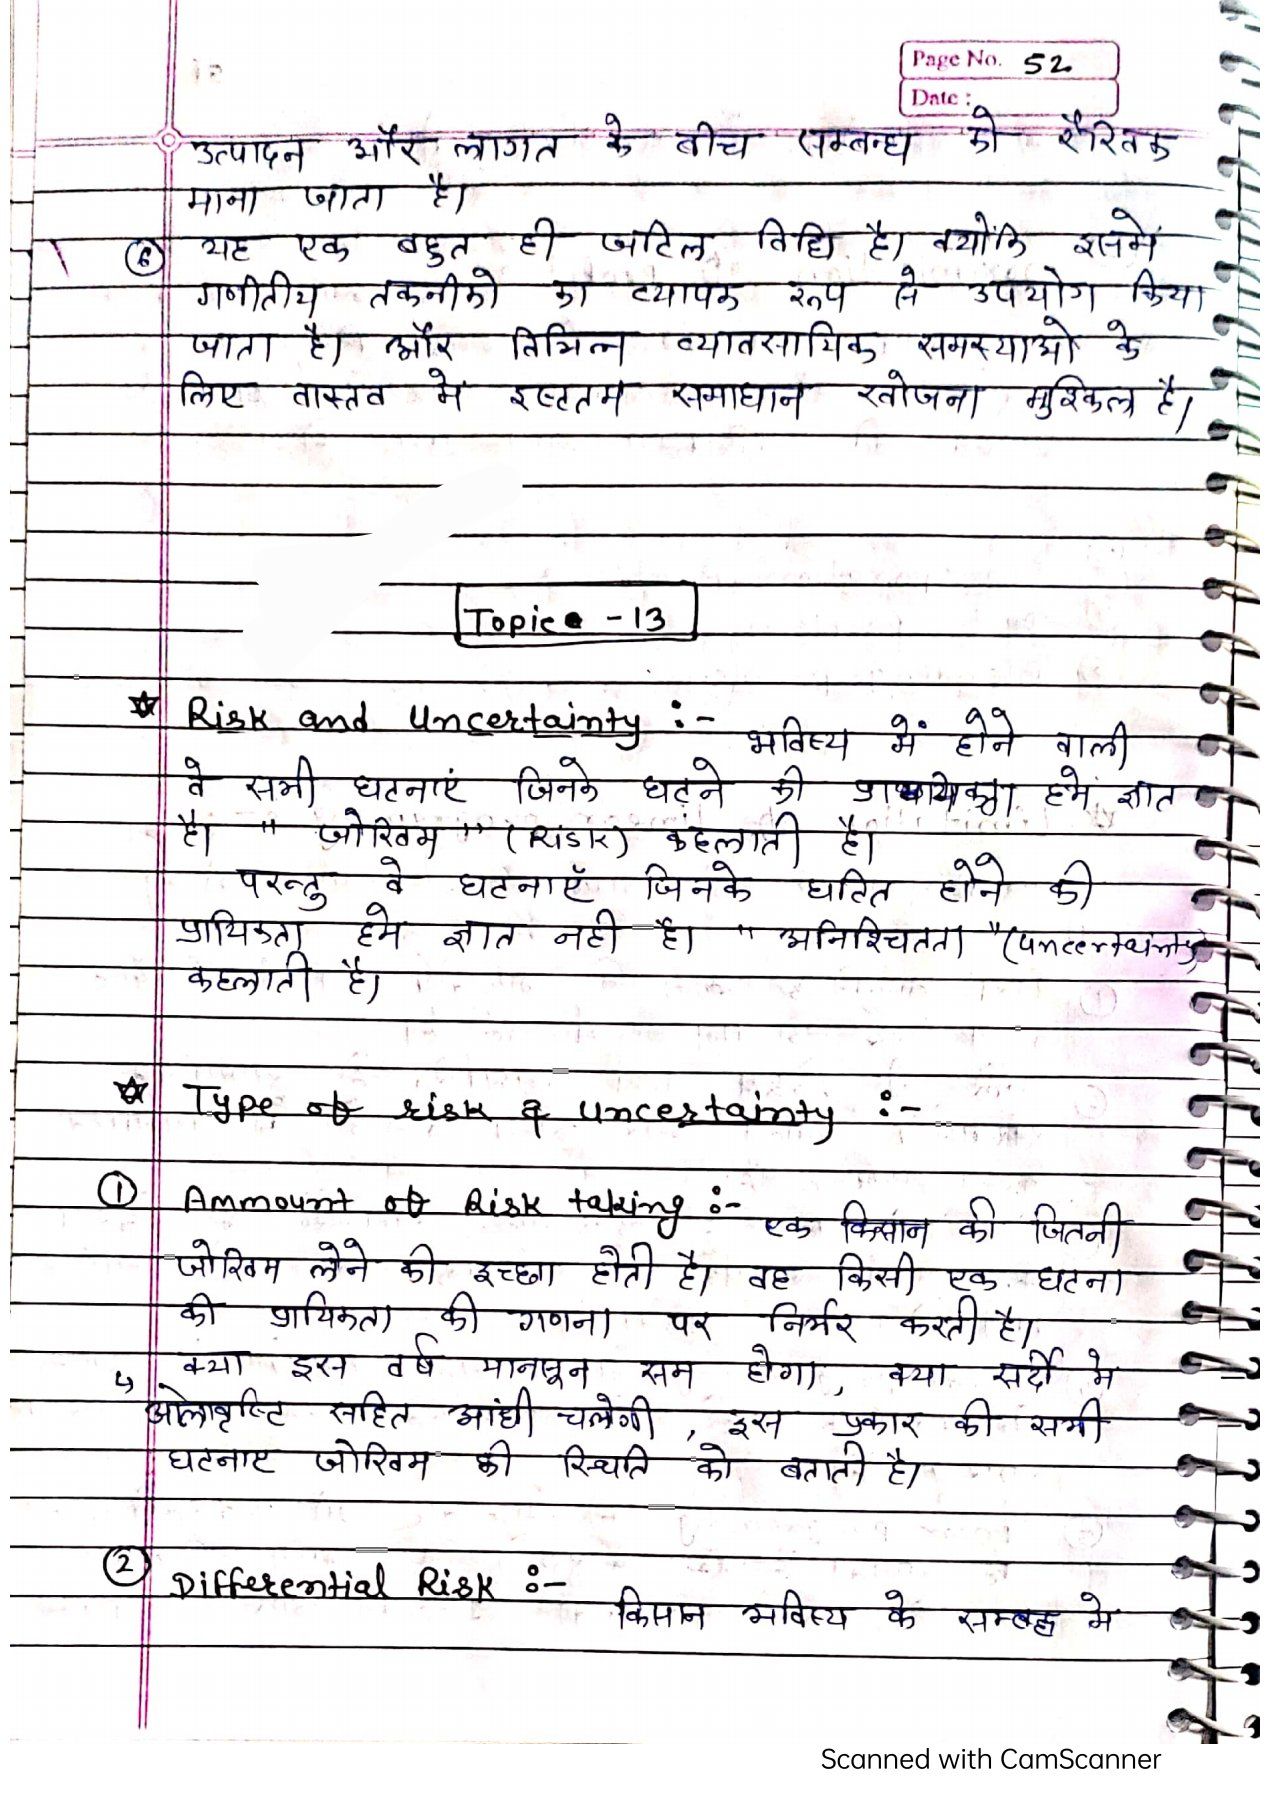 Page No. 52
Date :
उत्पादन और लागत के बीच सम्बन्ध को रैखिक
माना जाता है।
⑥ यह एक बहुत ही जटिल विधि है। क्योंकि इसमें
गणीतीय तकनीको का व्यापक रूप से उपयोग किया
जाता है। और विभिन्न व्यावसायिक समस्याओ के
लिए वास्तव मे इष्टतम समाधान खोजना मुश्किल है।
Topic - 13
☆ Risk and Uncertainty :-
भविष्य में होने वाली
वे सभी घटनाएं जिनके घटने की हमे ज्ञात
है। " जोखिम " (Risk) कहलाती है।
परन्तु वे घटनाएँ जिनके घटित होने की
प्रायिकता हमे ज्ञात नही है। " अनिश्चितता " (uncertainty)
कहलाती है।
☆ Type of risk & uncertainty :-
① Ammount of Risk taking :- एक किसान की जितनी
जोखिम लेने की इच्छा होती है। वह किसी एक घटना
की प्रायिकता की गणना पर निर्भर करती है।
↳ क्या इस वर्ष मानसून सम होगा, क्या सर्दी मे
ओलावृष्टि सहित आंधी चलेगी, इस प्रकार की सभी
घटनाए जोखिम की स्थिति को बताती है।
② Differential Risk :-
किसान भविष्य के सम्बन्ध मे
Scanned with CamScanner